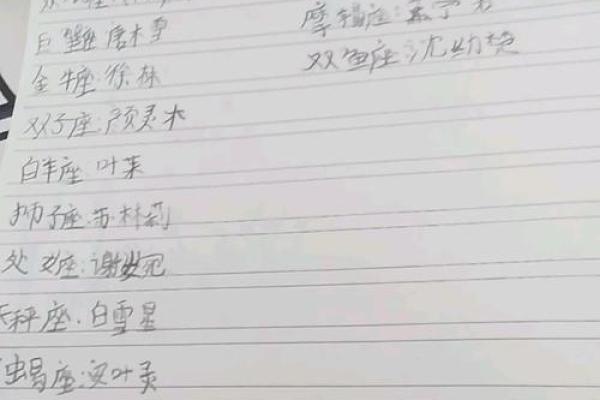 巨蟹座:唐木雪
金牛座:徐林
双子座:颜灵木
白羊座:叶茉
狮子座:苏林莉
处女座:谢宛
天秤座.白雪星
蝎座:安叶灵
摩羯座:
双鱼座:沈幼楚